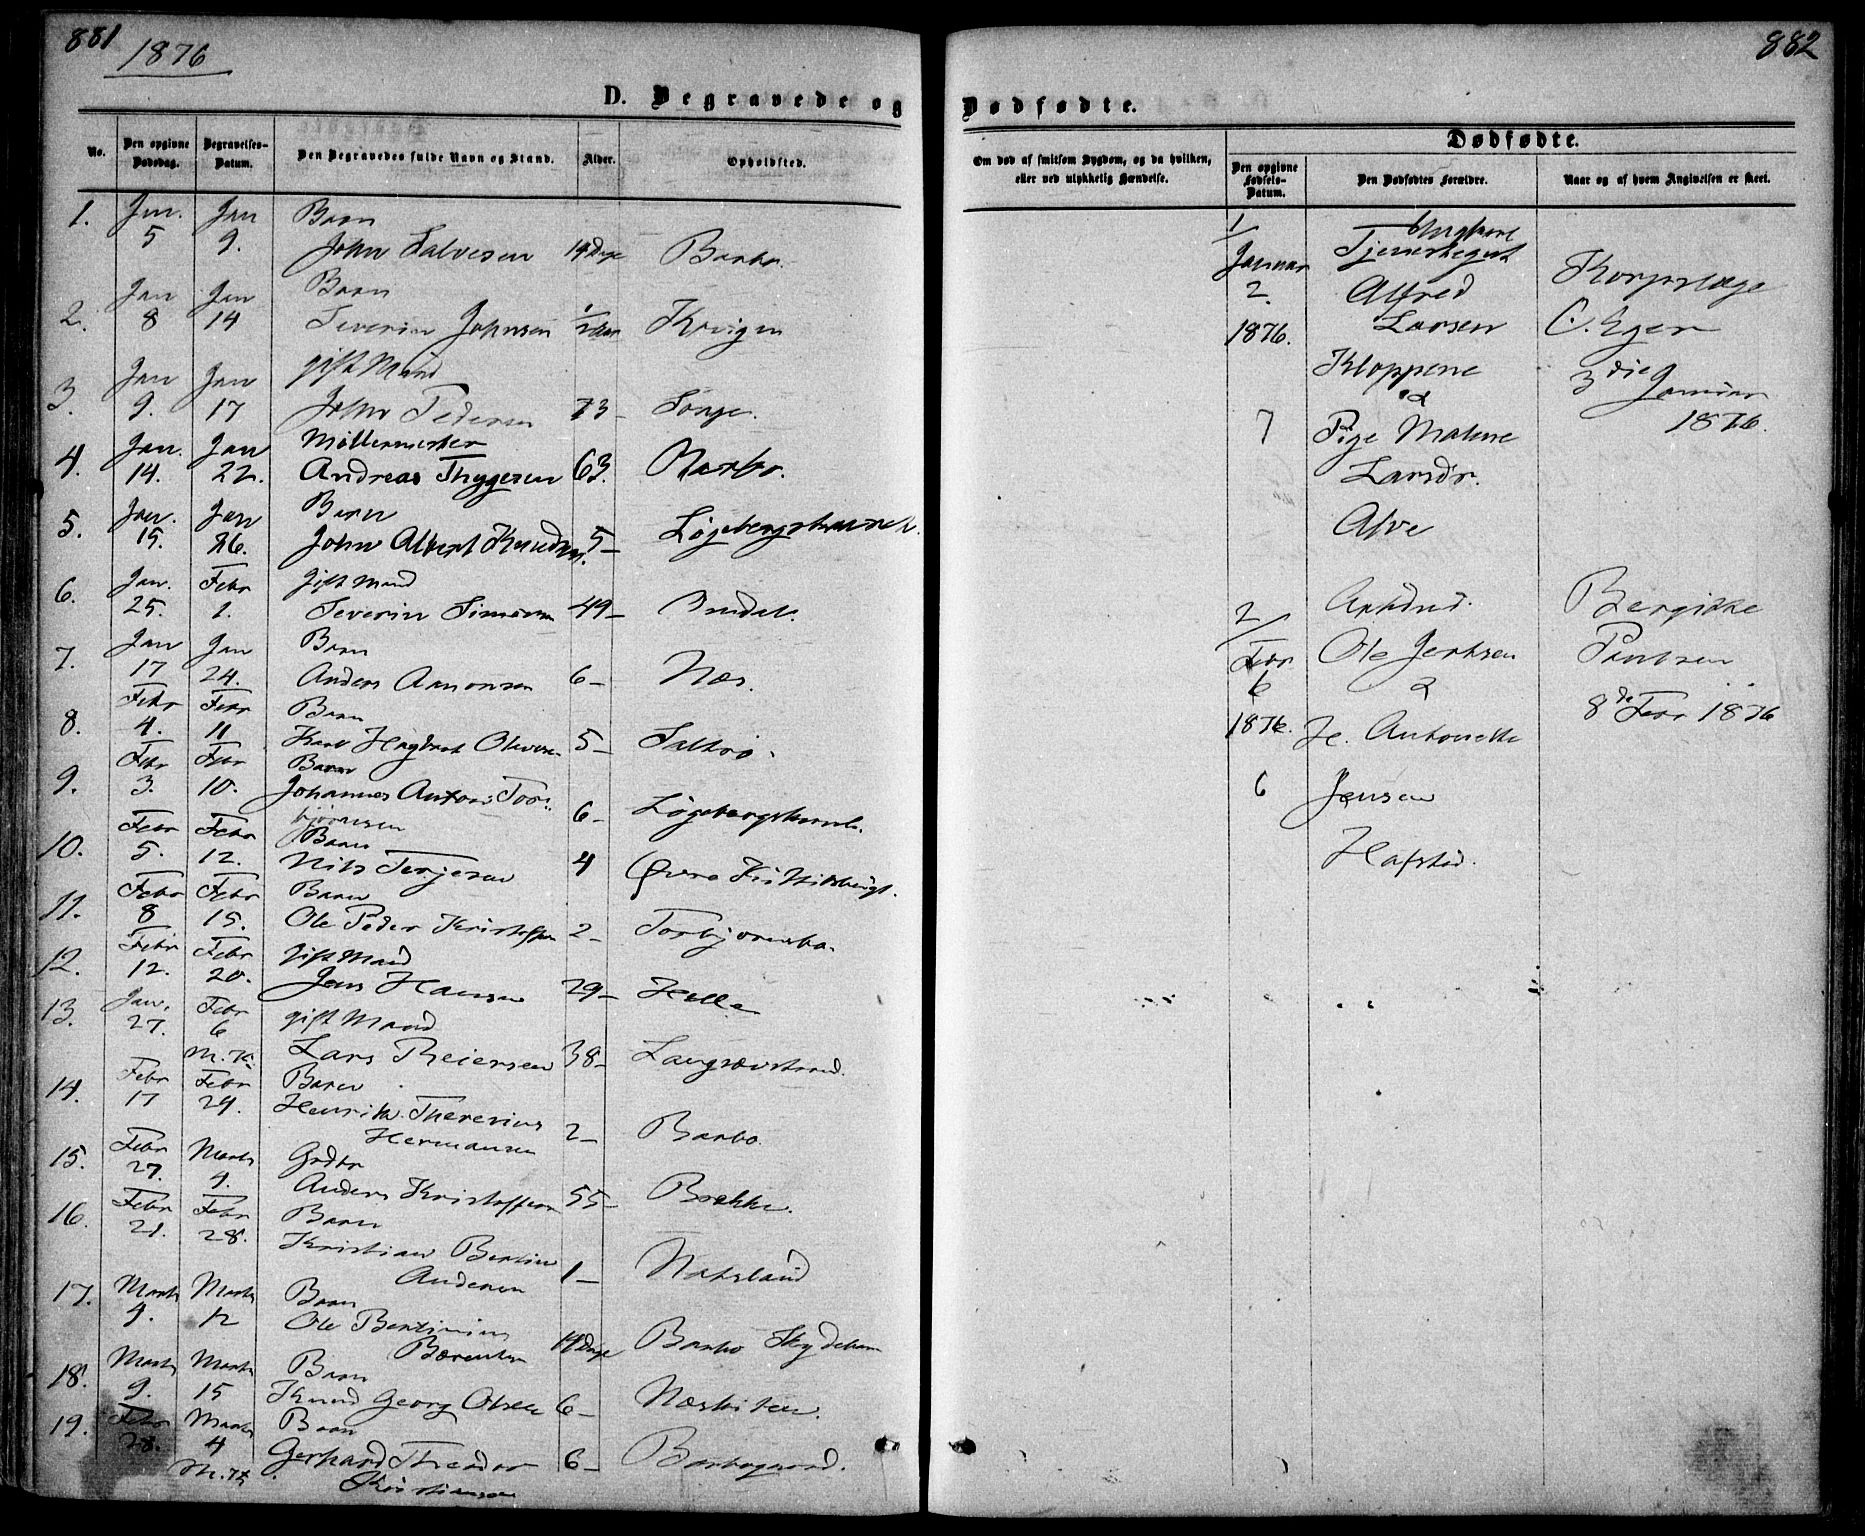 881
1876
882
D. Begravede og Dødfødte.
No.
Den opgivne Dødsdag.
Begravelses-Datum.
Den Begravedes fulde Navn og Stand.
Alder.
Opholdsted.
Om død af smitsom Sygdom, og da hvilken, eller ved ulykkelig Hændelse.
Dødfødte.
Den opgivne Fødsels-Datum.
Den Dødfødtes Forældre.
Naar og af hvem Angivelsen er skeet.
1. Jan. 5 Jan 9. Barn
John Salvesen 14 Dage Barbo.
2. Jan 8 Jan 14 Barn
Severin Johnsen 1/2 Aar Krøgen
3. Jan 9. Jan 17 gift Mand
John Pedersen 73 – Songe.
4. Jan. 14. Jan 22. Møllermester
Andreas Thygesen 63. Barbo.
5. Jan. 15. Jan 26. Barn
John Albert Knudsen. 5 – Løgebergskaret.
6. Jan. 25. Febr 1. gift Mand
Severin Simonsen 49 –
7. Jan 17 Jan 24. Barn
Anders Aanonsen 6 – Næs.
8. Febr 4. Febr 11 Barn
Karl Hagbart Olsen 5 – Saltrø
9. Febr 3. Febr 10. Barn
Johannes Anton Tor-
bjørnsen 6 –
10. Febr 5. Febr 12. Barn
Nils Terjesen 4 Øvre
11. Febr 8 Febr 15. Barn
Ole Peder Kristoffersen 2 – Torbjørnsbo.
12. Febr 12. Febr 20. gift Mand
Jens Hansen 29 – Helle
13. Jan. 27. Febr 6 gift Mand
M. K. Lars Reiersen 38 – Langsævstrand.
14. Febr 17 Febr 24. Barn
Henrik Therevius
Hermansen 2 – Barbo.
15. Febr 27. Marts 4. Gdbr
Anders Kristoffersen 55 – Brække.
16. Febr 21. Febr 28. Barn
Kristian Bertin
Andersen 1 – Natvland
17. Marts 4. Marts 12 Barn
Ole Bentinius
Bærentsen 14 Dage Barbo Skydeban
18. Marts 9. Marts 15 Barn
Knud Georg Olsen 6 – Næskilen.
19. Febr 28. Marts 4 Barn
M. K. Gerhard Theodor 6 – Barbogaard.
Kristiansen
1/ Januar 2. 1876.
Ungkarl
Tjenestegut
Alfred
Larsen
Kloppene
&
7 Pige Malene
Larsdr.
Alve
Korpslæge
C. Eger
3die Januar
1876.
2/ Febr 6 1876.
Arbdmd.
Ole Jensen
&
H. Antonette
6 Jensen
Hafstad.
Bergitte
Paulsen
8de Febr 1876